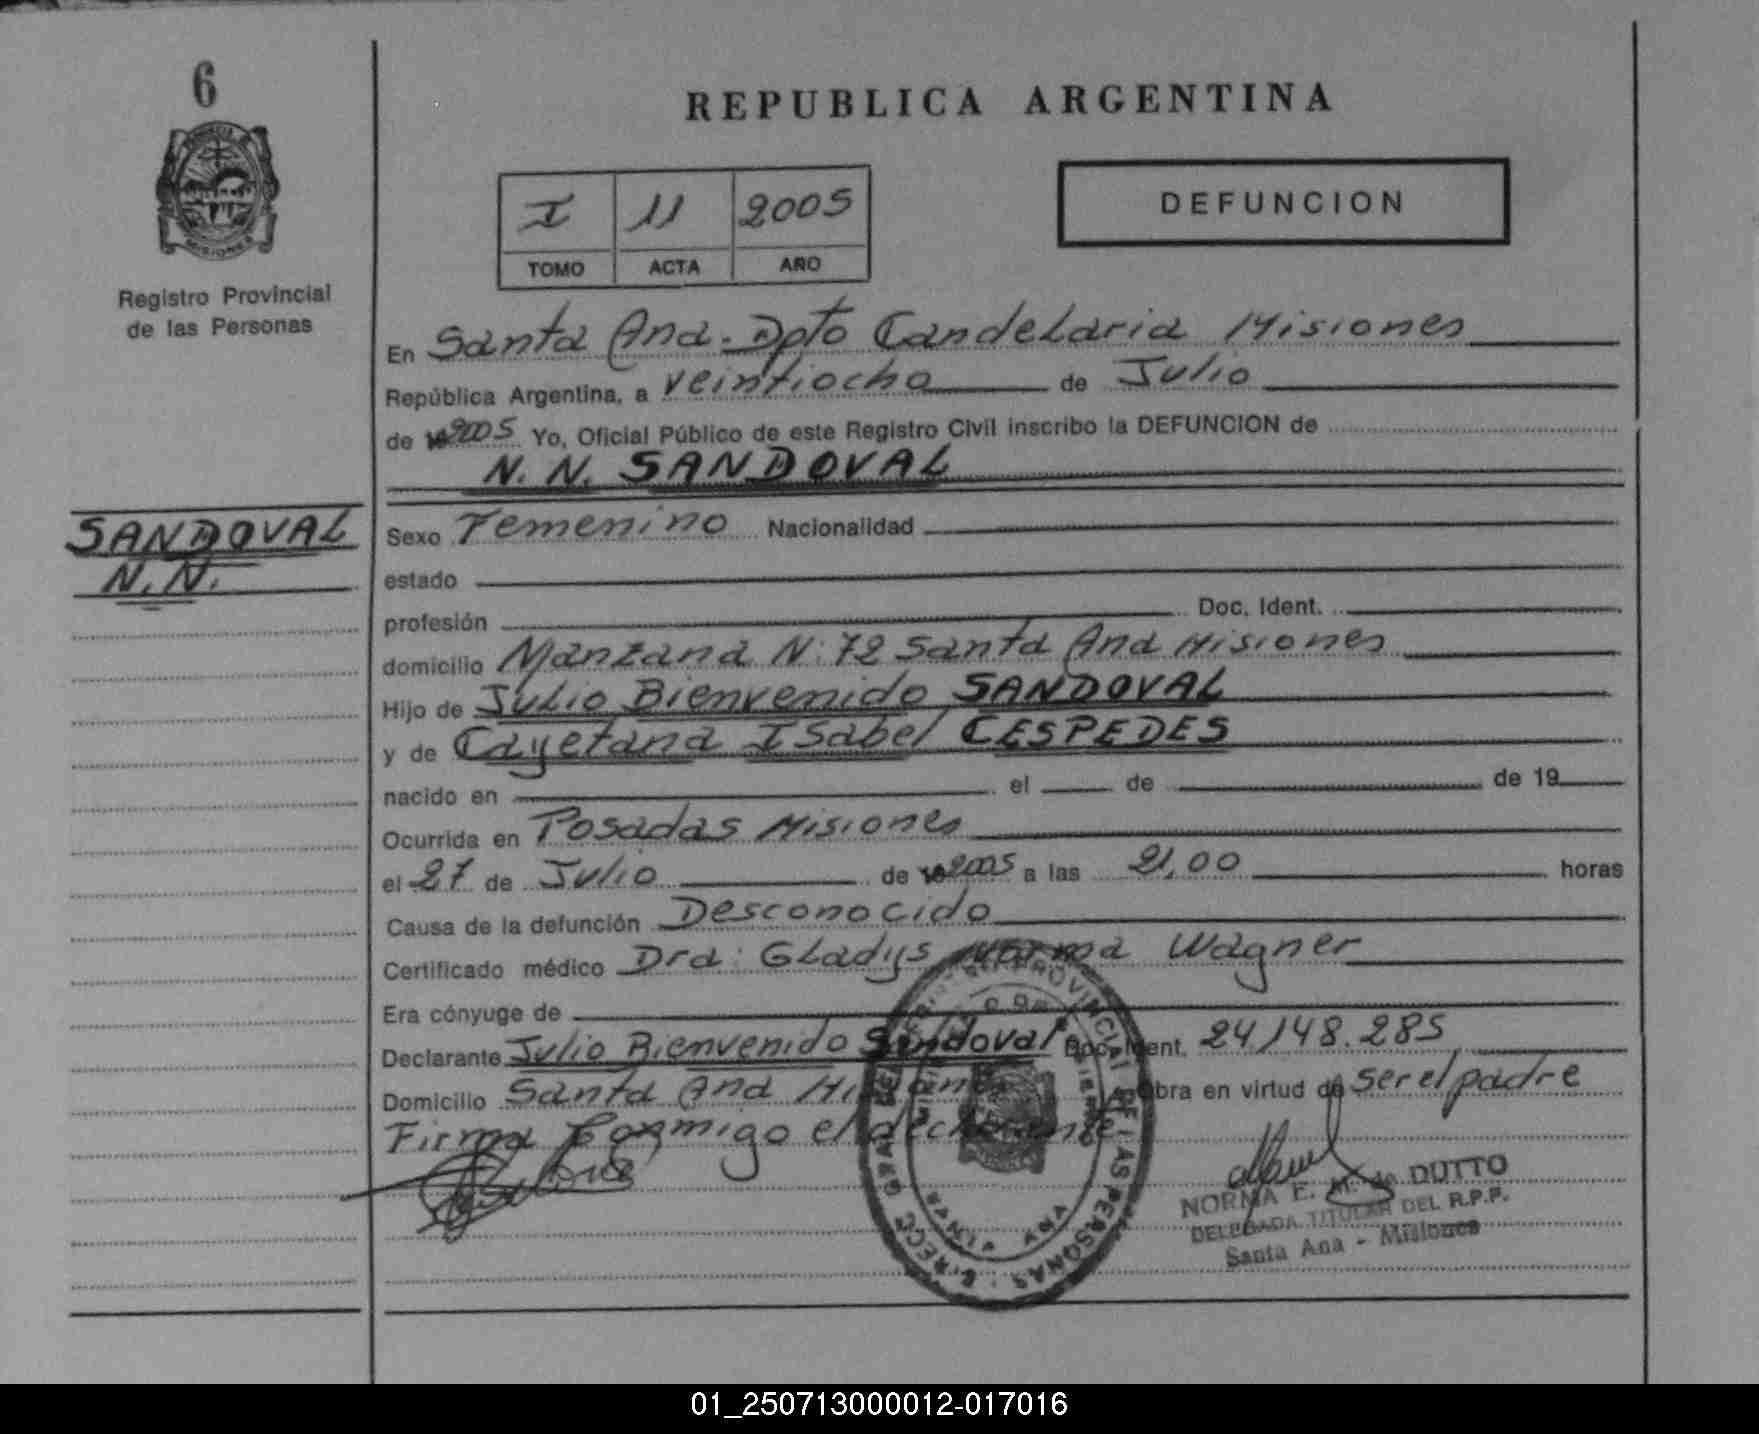 6
REPUBLICA ARGENTINA
MISIONES
Registro Provincial
de las Personas
I 11 2005
TOMO ACTA AÑO
DEFUNCION
En Santa Ana - Dpto Candelaria Misiones
República Argentina, a veintiocho de Julio
de 2005 Yo, Oficial Público de este Registro Civil inscribo la DEFUNCION de
N. N. SANDOVAL
SANDOVAL
N. N.
Sexo Femenino Nacionalidad
estado
profesión Doc. Ident.
domicilio Manzana N: 72 Santa Ana Misiones
Hijo de Julio Bienvenido SANDOVAL
y de Cayetana Isabel CESPEDES
nacido en el de de 19
Ocurrida en Posadas Misiones
el 27 de Julio de 2005 a las 21,00 horas
Causa de la defunción Desconocido
Certificado médico Dra: Gladys Norma Wagner
Era cónyuge de
Declarante Julio Bienvenido Sandoval Doc. Ident. 24148.285
Domicilio Santa Ana Misiones Obra en virtud de ser el padre
Firma Conmigo el declarante
PROVINCIAL DE LAS PERSONAS
SANTA ANA
NORMA E. M. de DUTTO
DELEGADA TITULAR DEL R.P.P.
Santa Ana - Misiones
01_250713000012-017016